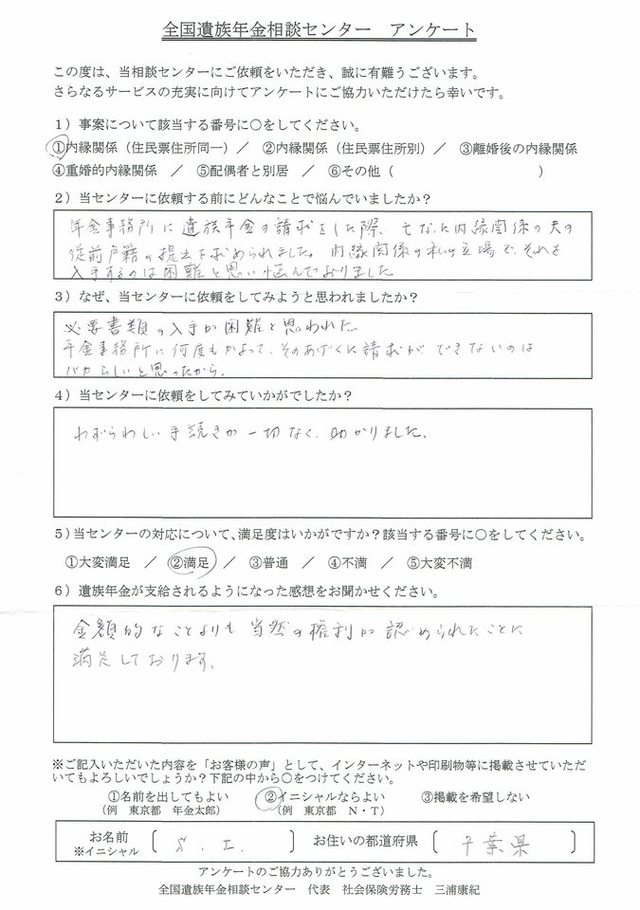 全国遺族年金相談センター　アンケート
この度は、当相談センターにご依頼をいただき、誠に有難うございます。
さらなるサービスの充実に向けてアンケートにご協力いただけたら幸いです。
1）事案について該当する番号に○をしてください。
①内縁関係（住民票住所同一）／　②内縁関係（住民票住所別）／　③離婚後の内縁関係
④重婚的内縁関係　／　⑤配偶者と別居　／　⑥その他（　　　　　　　　　）
2）当センターに依頼する前にどんなことで悩んでいましたか？
年金事務所に遺族年金の請求をした際、亡なった内縁関係の夫の
従前戸籍の提出を求められました。内縁関係の私の立場で、それを
入手するのは困難と思い悩んでおりました
3）なぜ、当センターに依頼をしてみようと思われましたか？
必要書類の入手が困難と思われた
年金事務所に何度もかよって、そのあげくに請求ができないのは
バカらしいと思ったから。
4）当センターに依頼をしてみていかがでしたか？
わずらわしい手続きが一切なく、助かりました。
5）当センターの対応について、満足度はいかがですか？該当する番号に○をしてください。
①大変満足　／　②満足　／　③普通　／　④不満　／　⑤大変不満
6）遺族年金が支給されるようになった感想をお聞かせください。
金額的なことよりも当然の権利が認められたことに
満足しております。
※ご記入いただいた内容を「お客様の声」として、インターネットや印刷物等に掲載させていただ
いてもよろしいでしょうか？下記の中から○をつけてください。
①名前を出してもよい　②イニシャルならよい　③掲載を希望しない
（例　東京都　年金太郎）　（例　東京都　N・T）
お名前　〔 S. I. 〕　お住いの都道府県　〔 千葉県 〕
※イニシャル
アンケートのご協力ありがとうございました。
全国遺族年金相談センター　代表　社会保険労務士　三浦康紀